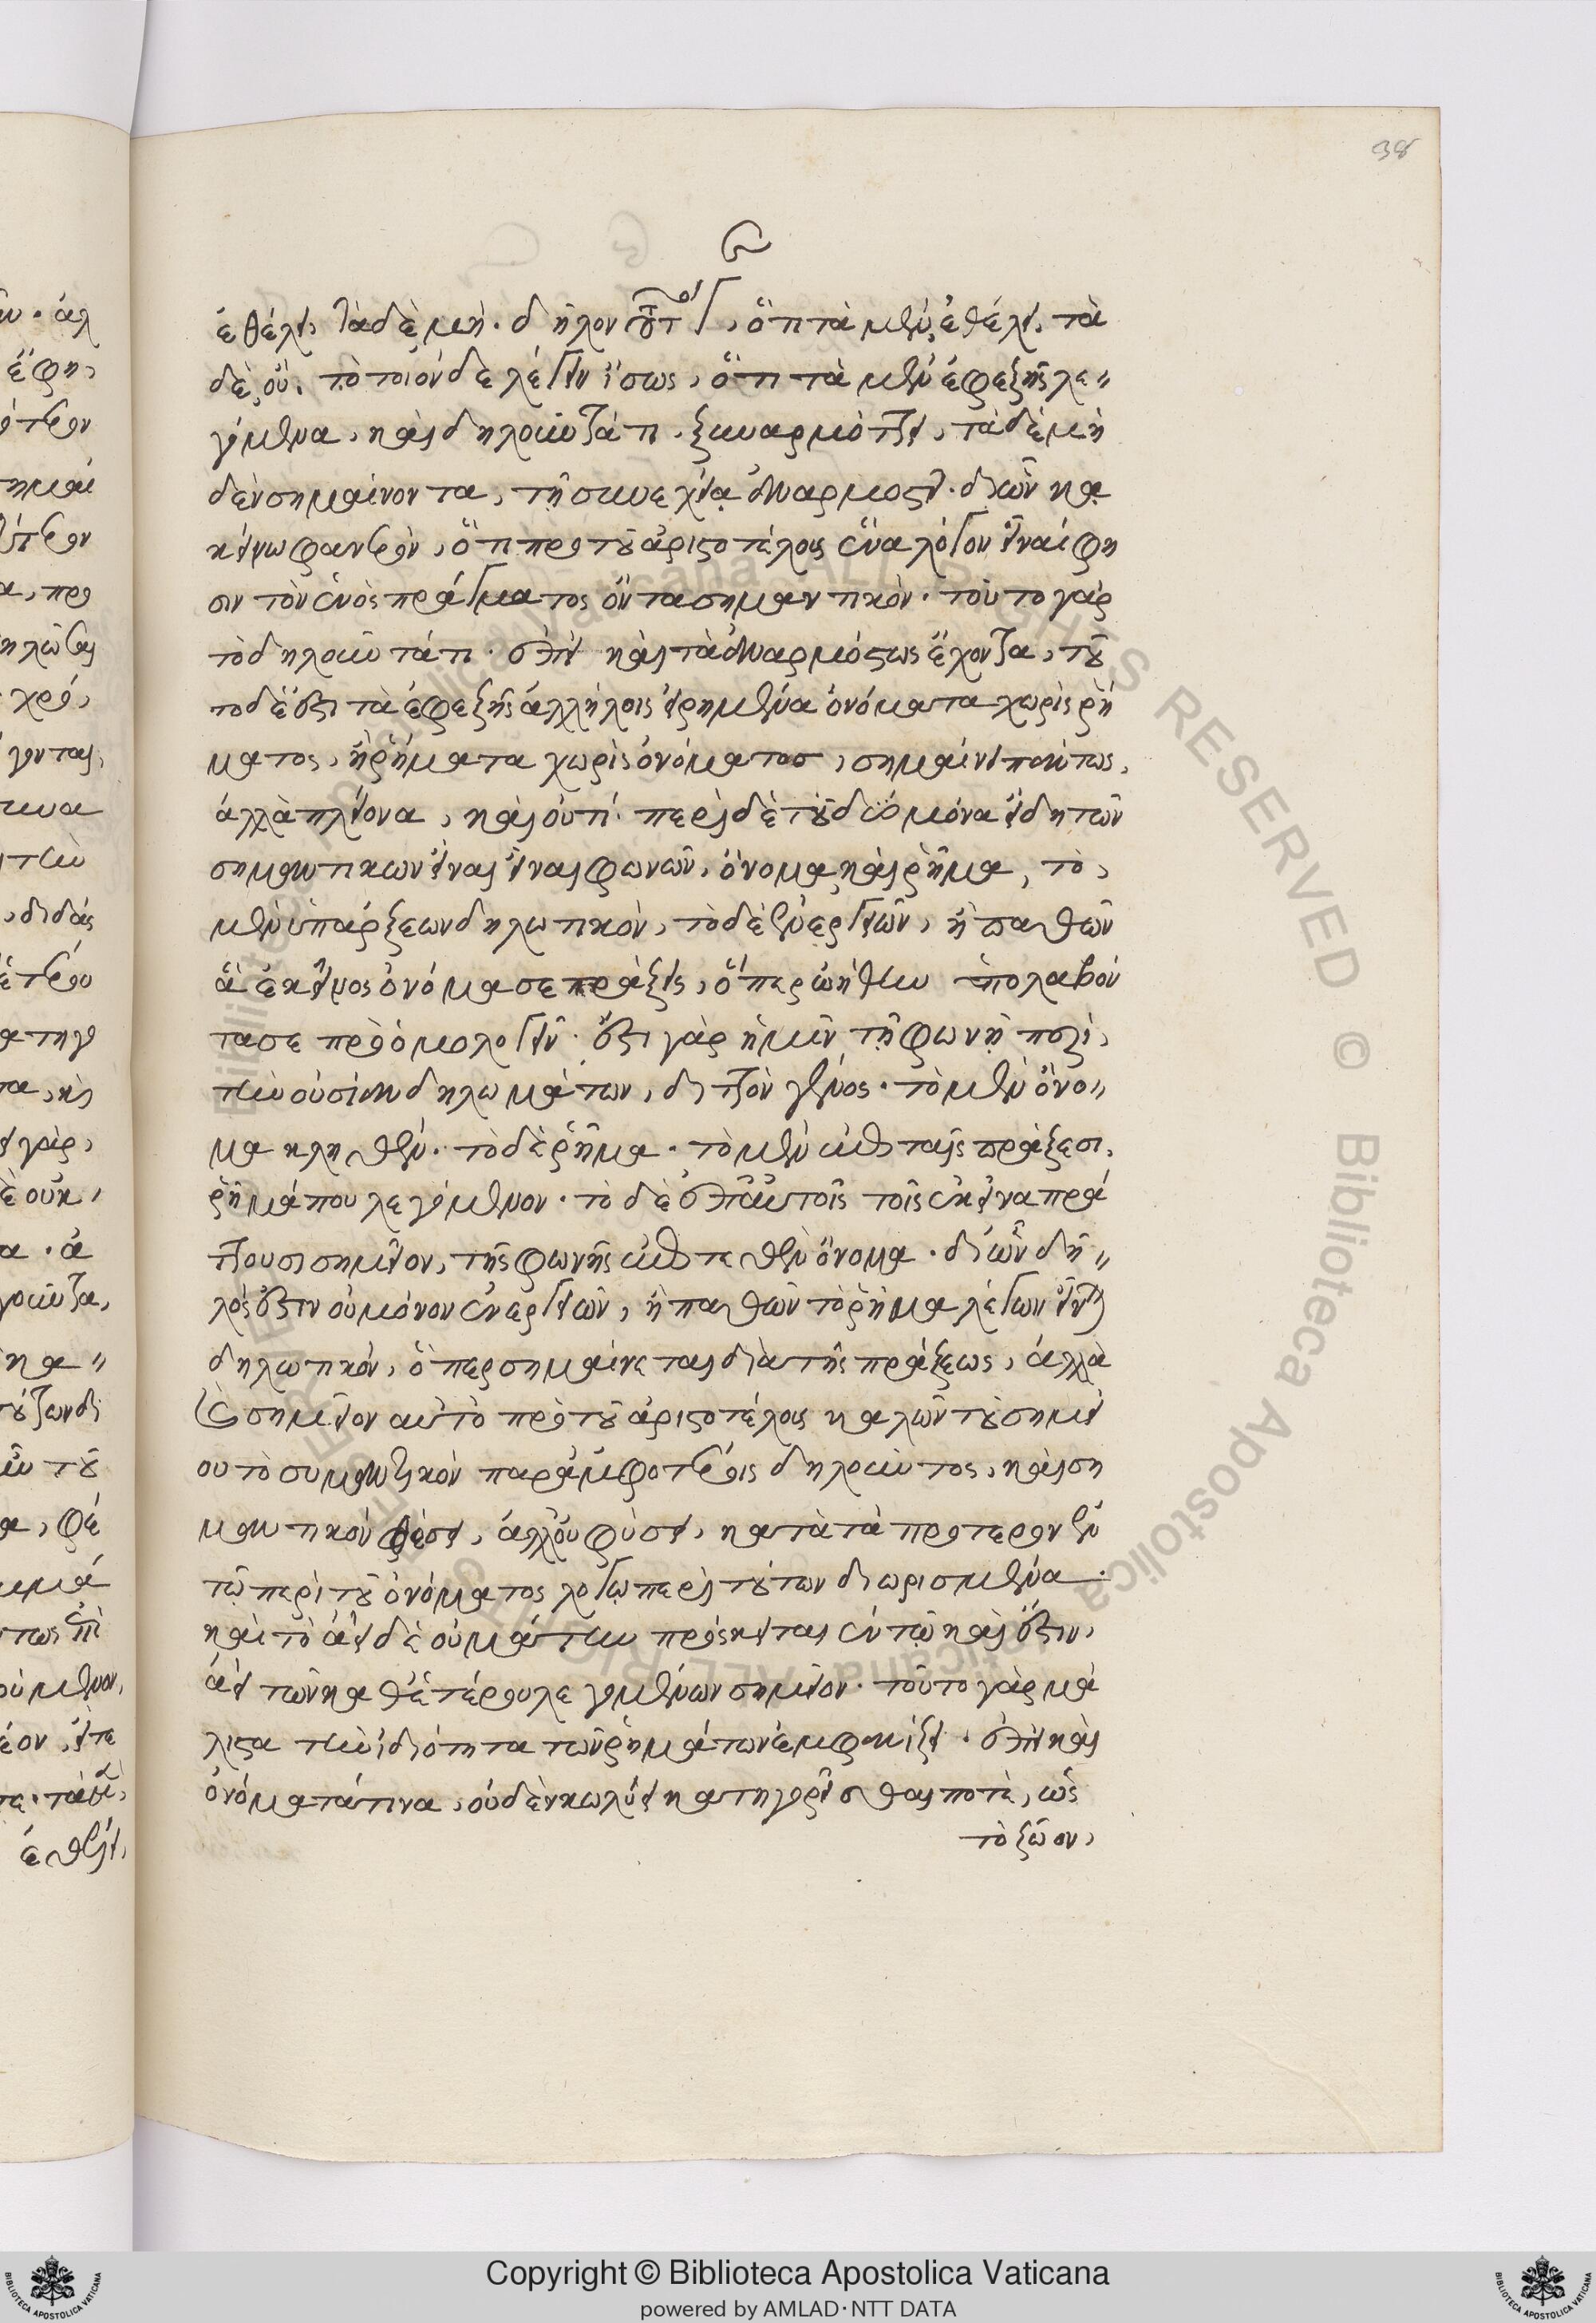 38
ἐθέλει, τὰ δὲ μή. δῆλον τοῦτο, ὅτι τὰ μὲν ἐθέλει, τὰ
δὲ οὔ. τὸ τοιόνδε λέγειν ἴσως, ὅτι τὰ μὲν ἐφεξῆς λε-
γόμενα, καὶ δηλοῦντά τι ξυναρμόττει, τὰ δὲ μη
δὲν σημαίνοντα, τῇ συνεχείᾳ ἀναρμοστεῖ. δι ὧν κα
κεῖνο φανερόν, ὅτι πρὸ τοῦ ἀριστοτέλους ἕνα λόγον εἶναί φη
σιν τὸν ἑνὸς πράγματος ὄντα σημαντικόν. τοῦτο γάρ
τὸ δηλοῦν τά τι. ἐπεὶ καὶ τὰ ἀναρμόστως ἔχοντα, τοῦ
το δέ ἐστι τὰ ἐφεξῆς ἀλλήλοις εἰρημένα ὀνόματα χωρὶς ῥή
ματος, ἢ ῥήματα χωρὶς ὀνόματος, σημαίνει πάντως,
ἀλλὰ πλείονα, καὶ οὔ τι. περὶ δὲ τοῦ δύο μόνα εἴδη τῶν
σημαντικῶν εἶναι εἶναι φωνῶν, ὄνομα καὶ ῥῆμα, τὸ,
μὲν ὑπάρξεων δηλωτικὸν, τὸ δὲ ἐνεργειῶν, ἢ παθῶν
ἃ ἐκεῖνος ὀνόμασε πράξεις, ὅπερ ὠήθην ὑπολαβόν
τα σε προομολογεῖν. ἔστι γὰρ ἡμῖν τῇ φωνῇ περὶ,
τὴν οὐσίαν δηλωμάτων, διττὸν γένος. τὸ μὲν ὄνο-
μα κληθέν. τὸ δὲ ῥῆμα. τὸ μὲν ἐπὶ ταῖς πράξεσι,
ῥῆμά που λεγόμενον. τὸ δὲ ἐπ αὐτοῖς τοῖς ἐκεῖνα πρά
ττουσι σημεῖον, τῆς φωνῆς ἐπιτεθὲν ὄνομα. δι ὧν δῆ-
λός ἐστιν οὐ μόνον ἐνεργειῶν, ἢ παθῶν τὸ ῥῆμα λέγων εἶναι
δηλωτικόν, ὅπερ σημαίνεται διὰ τῆς πράξεως, ἀλλὰ
καὶ σημεῖον αὐτὸ πρὸ τοῦ ἀριστοτέλους καλῶν τοῦ σημεί
ου τὸ συμβατικὸν παρ ἀμφοτέροις δηλοῦντος, καὶ ση
μαντικὸν θέσει, ἀλλ οὐ φύσει, κατὰ τὰ πρότερον ἐν
τῷ περὶ τοῦ ὀνόματος λόγῳ περὶ τούτων διωρισμένα.
καὶ τὸ ἀεὶ δὲ οὐ μάτην πρόσκειται ἐν τῷ καὶ ἔστιν,
ἀεὶ τῶν καθ ἑτέρου λεγομένων σημεῖον. τοῦτο γὰρ μά
λιστα τὴν ἰδιότητα τῶν ῥημάτων ἐμφανίζει. ἐπεὶ καὶ
ὀνόματά τινα, οὐδὲν κωλύει κατηγορεῖσθαι ποτὲ, ὡς
τὸ ζῶον,
Copyright © Biblioteca Apostolica Vaticana
powered by AMLAD·NTT DATA